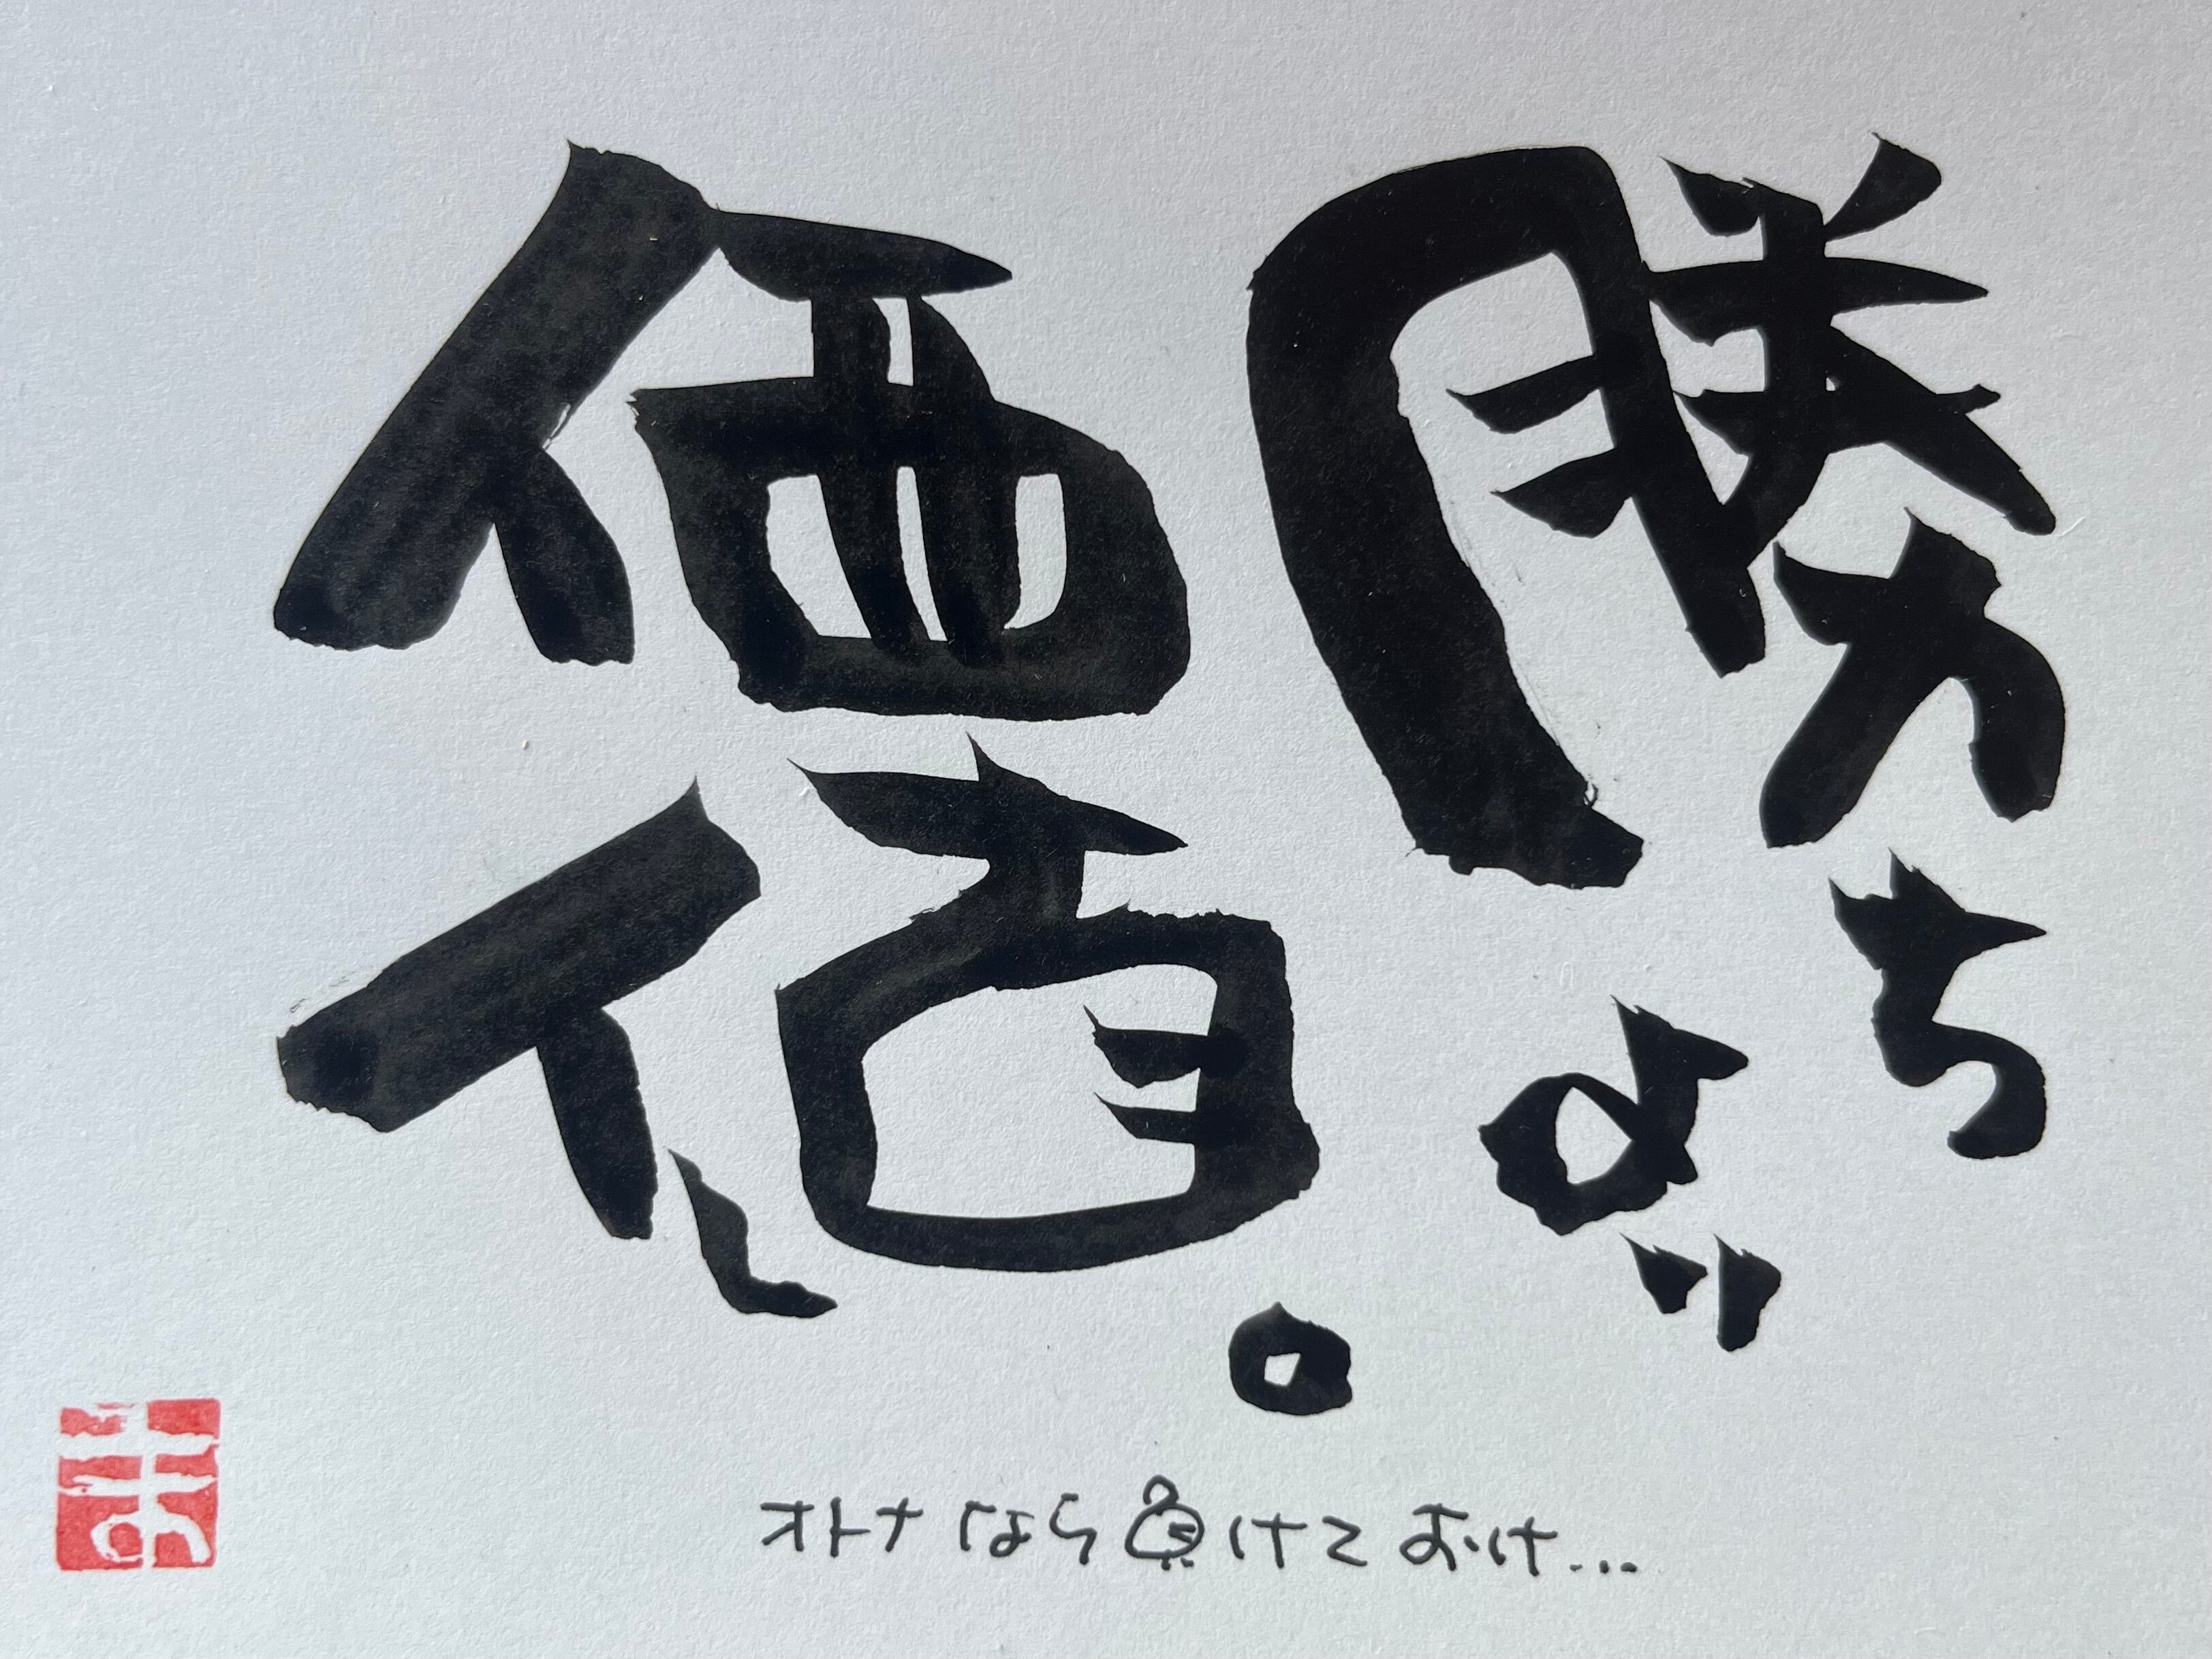 勝ち
より
価
値。
オトナなら負けておけ...
ま